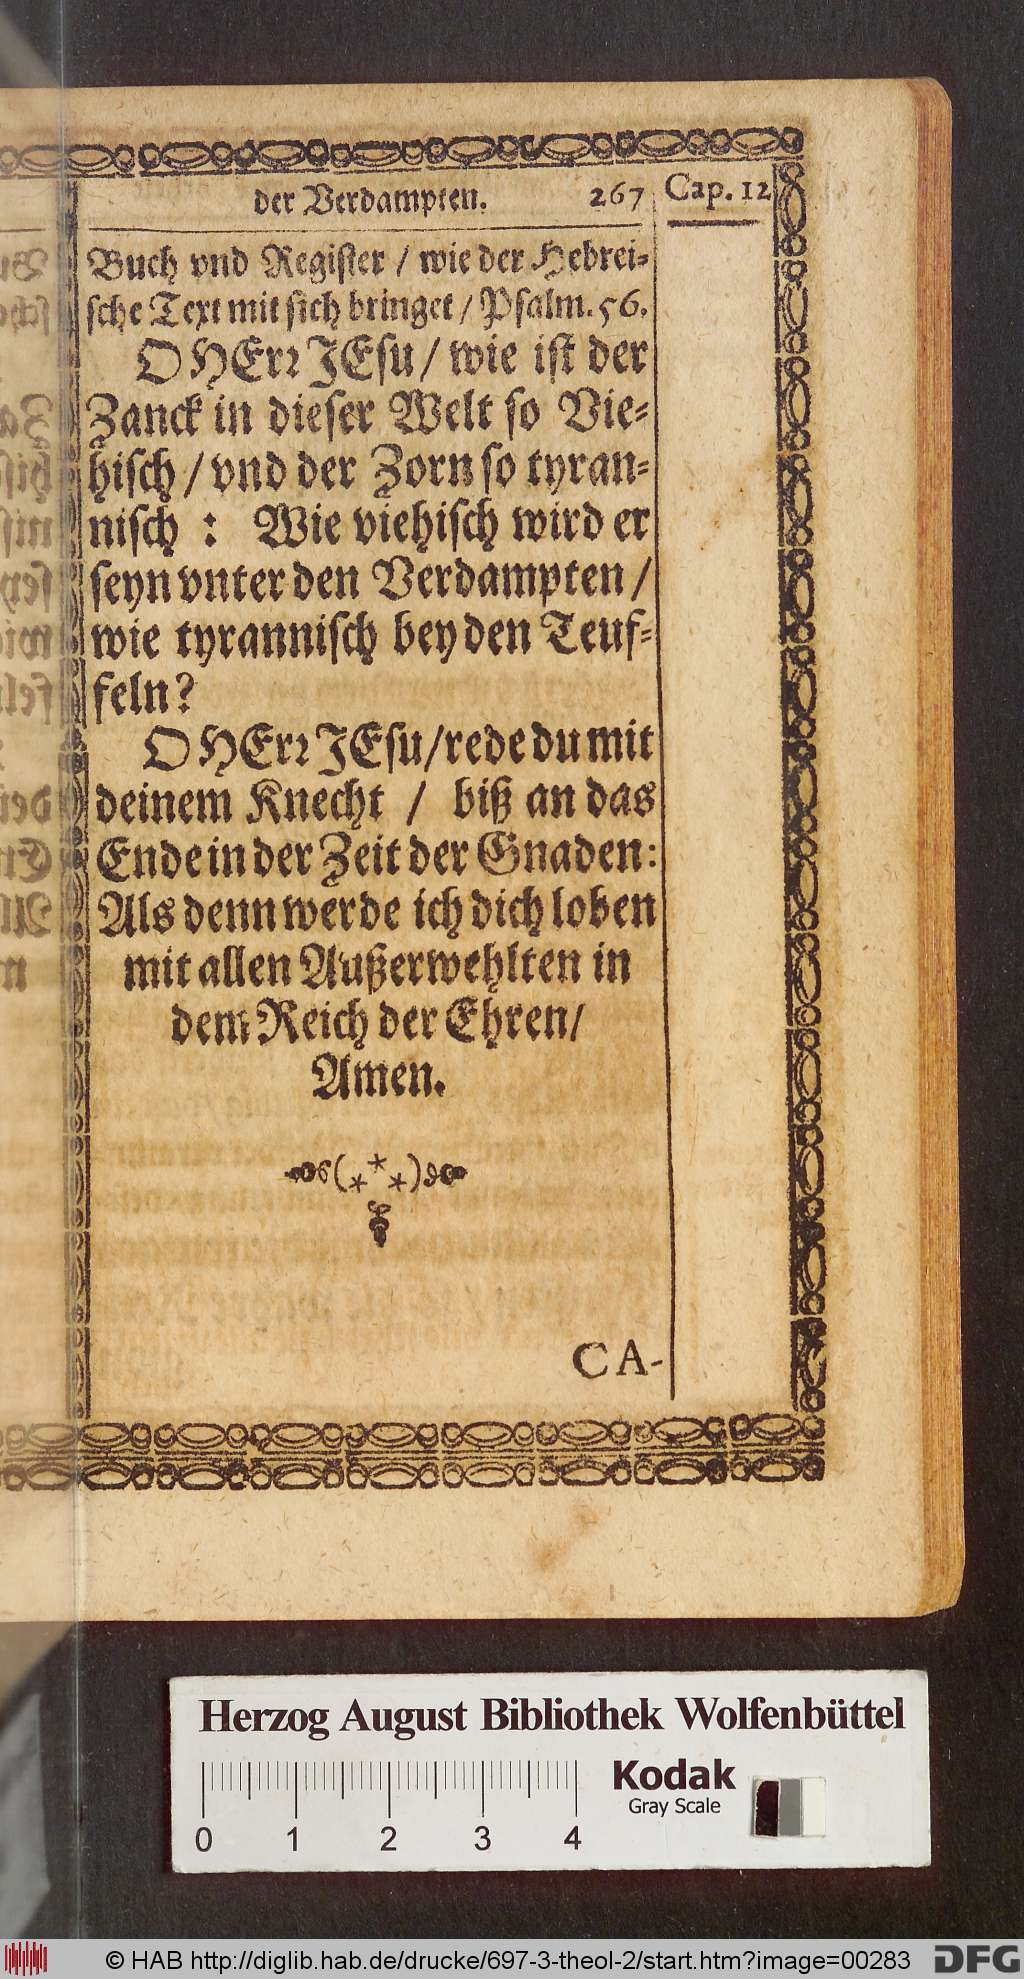 der Verdampten. 267 Cap. 12
Buch vnd Register / wie der Hebrei-
sche Text mit sich bringet / Psalm. 56.
O HErr JEsu / wie ist der
Zanck in dieser Welt so Vie-
hisch / vnd der Zorn so tyran-
nisch : Wie viehisch wird er
seyn vnter den Verdampten /
wie tyrannisch bey den Teuf-
feln?
O HErr JEsu / rede du mit
deinem Knecht / biß an das
Ende in der Zeit der Gnaden:
Als denn werde ich dich loben
mit allen Außerwehlten in
dem Reich der Ehren /
Amen.
CA-
Herzog August Bibliothek Wolfenbüttel
Kodak
Gray Scale
0 1 2 3 4
© HAB http://diglib.hab.de/drucke/697-3-theol-2/start.htm?image=00283
DFG